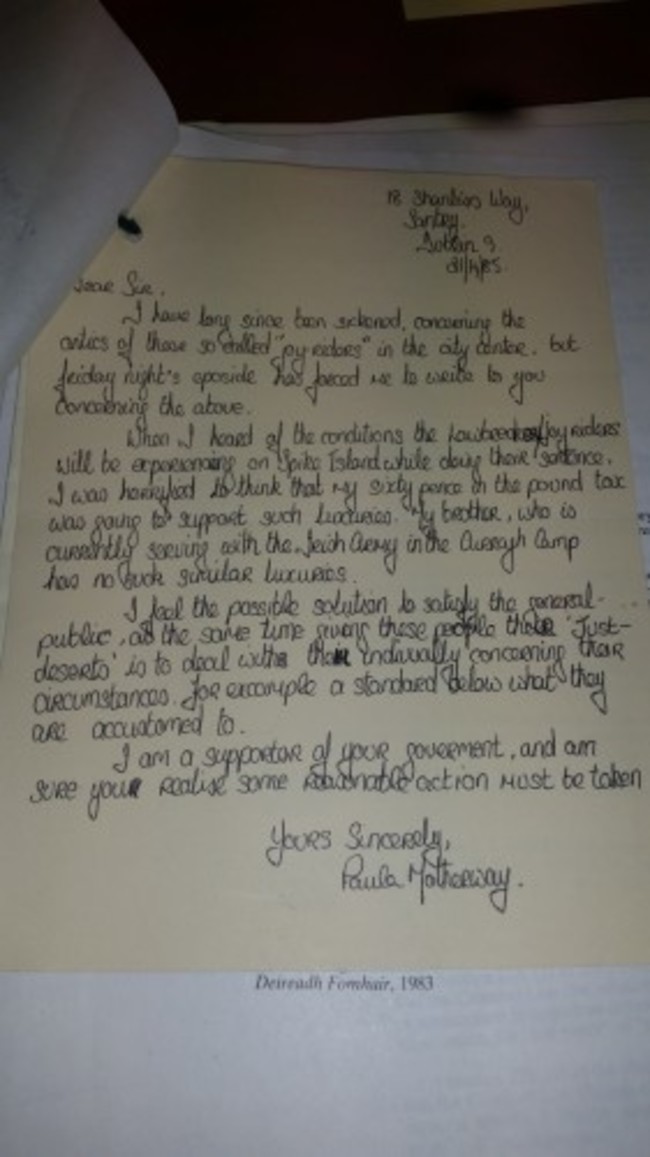 18 Shanliss Way,
Santry.
Dublin 9.
21/4/85.
Dear Sir.
I have long since been sickened, concerning the
antics of those so called "joy riders" in the city center. but
friday night's eposide has forced me to write to you
concerning the above.
When I heard of the conditions the joy riders
will be experiencing on Spike Island while doing there sentance.
I was horryfied to think that my sixty pence in the pound tax
was going to support such luxuries. My brother, who is
currently serving with the Irish Army in the Curragh Camp
has no such similar luxuries.
I feel the possible solution to satisfy the general-
public, at the same time giving these people there 'Just-
deserts' is to deal with them indivually concerning their
circumstances. for example a standard below what they
are accustomed to.
I am a supporter of your goverment, and am
sure you realise some reasonable action must be taken
Yours Sincerely,
Paula Motherway.
Deireadh Fomhair, 1983